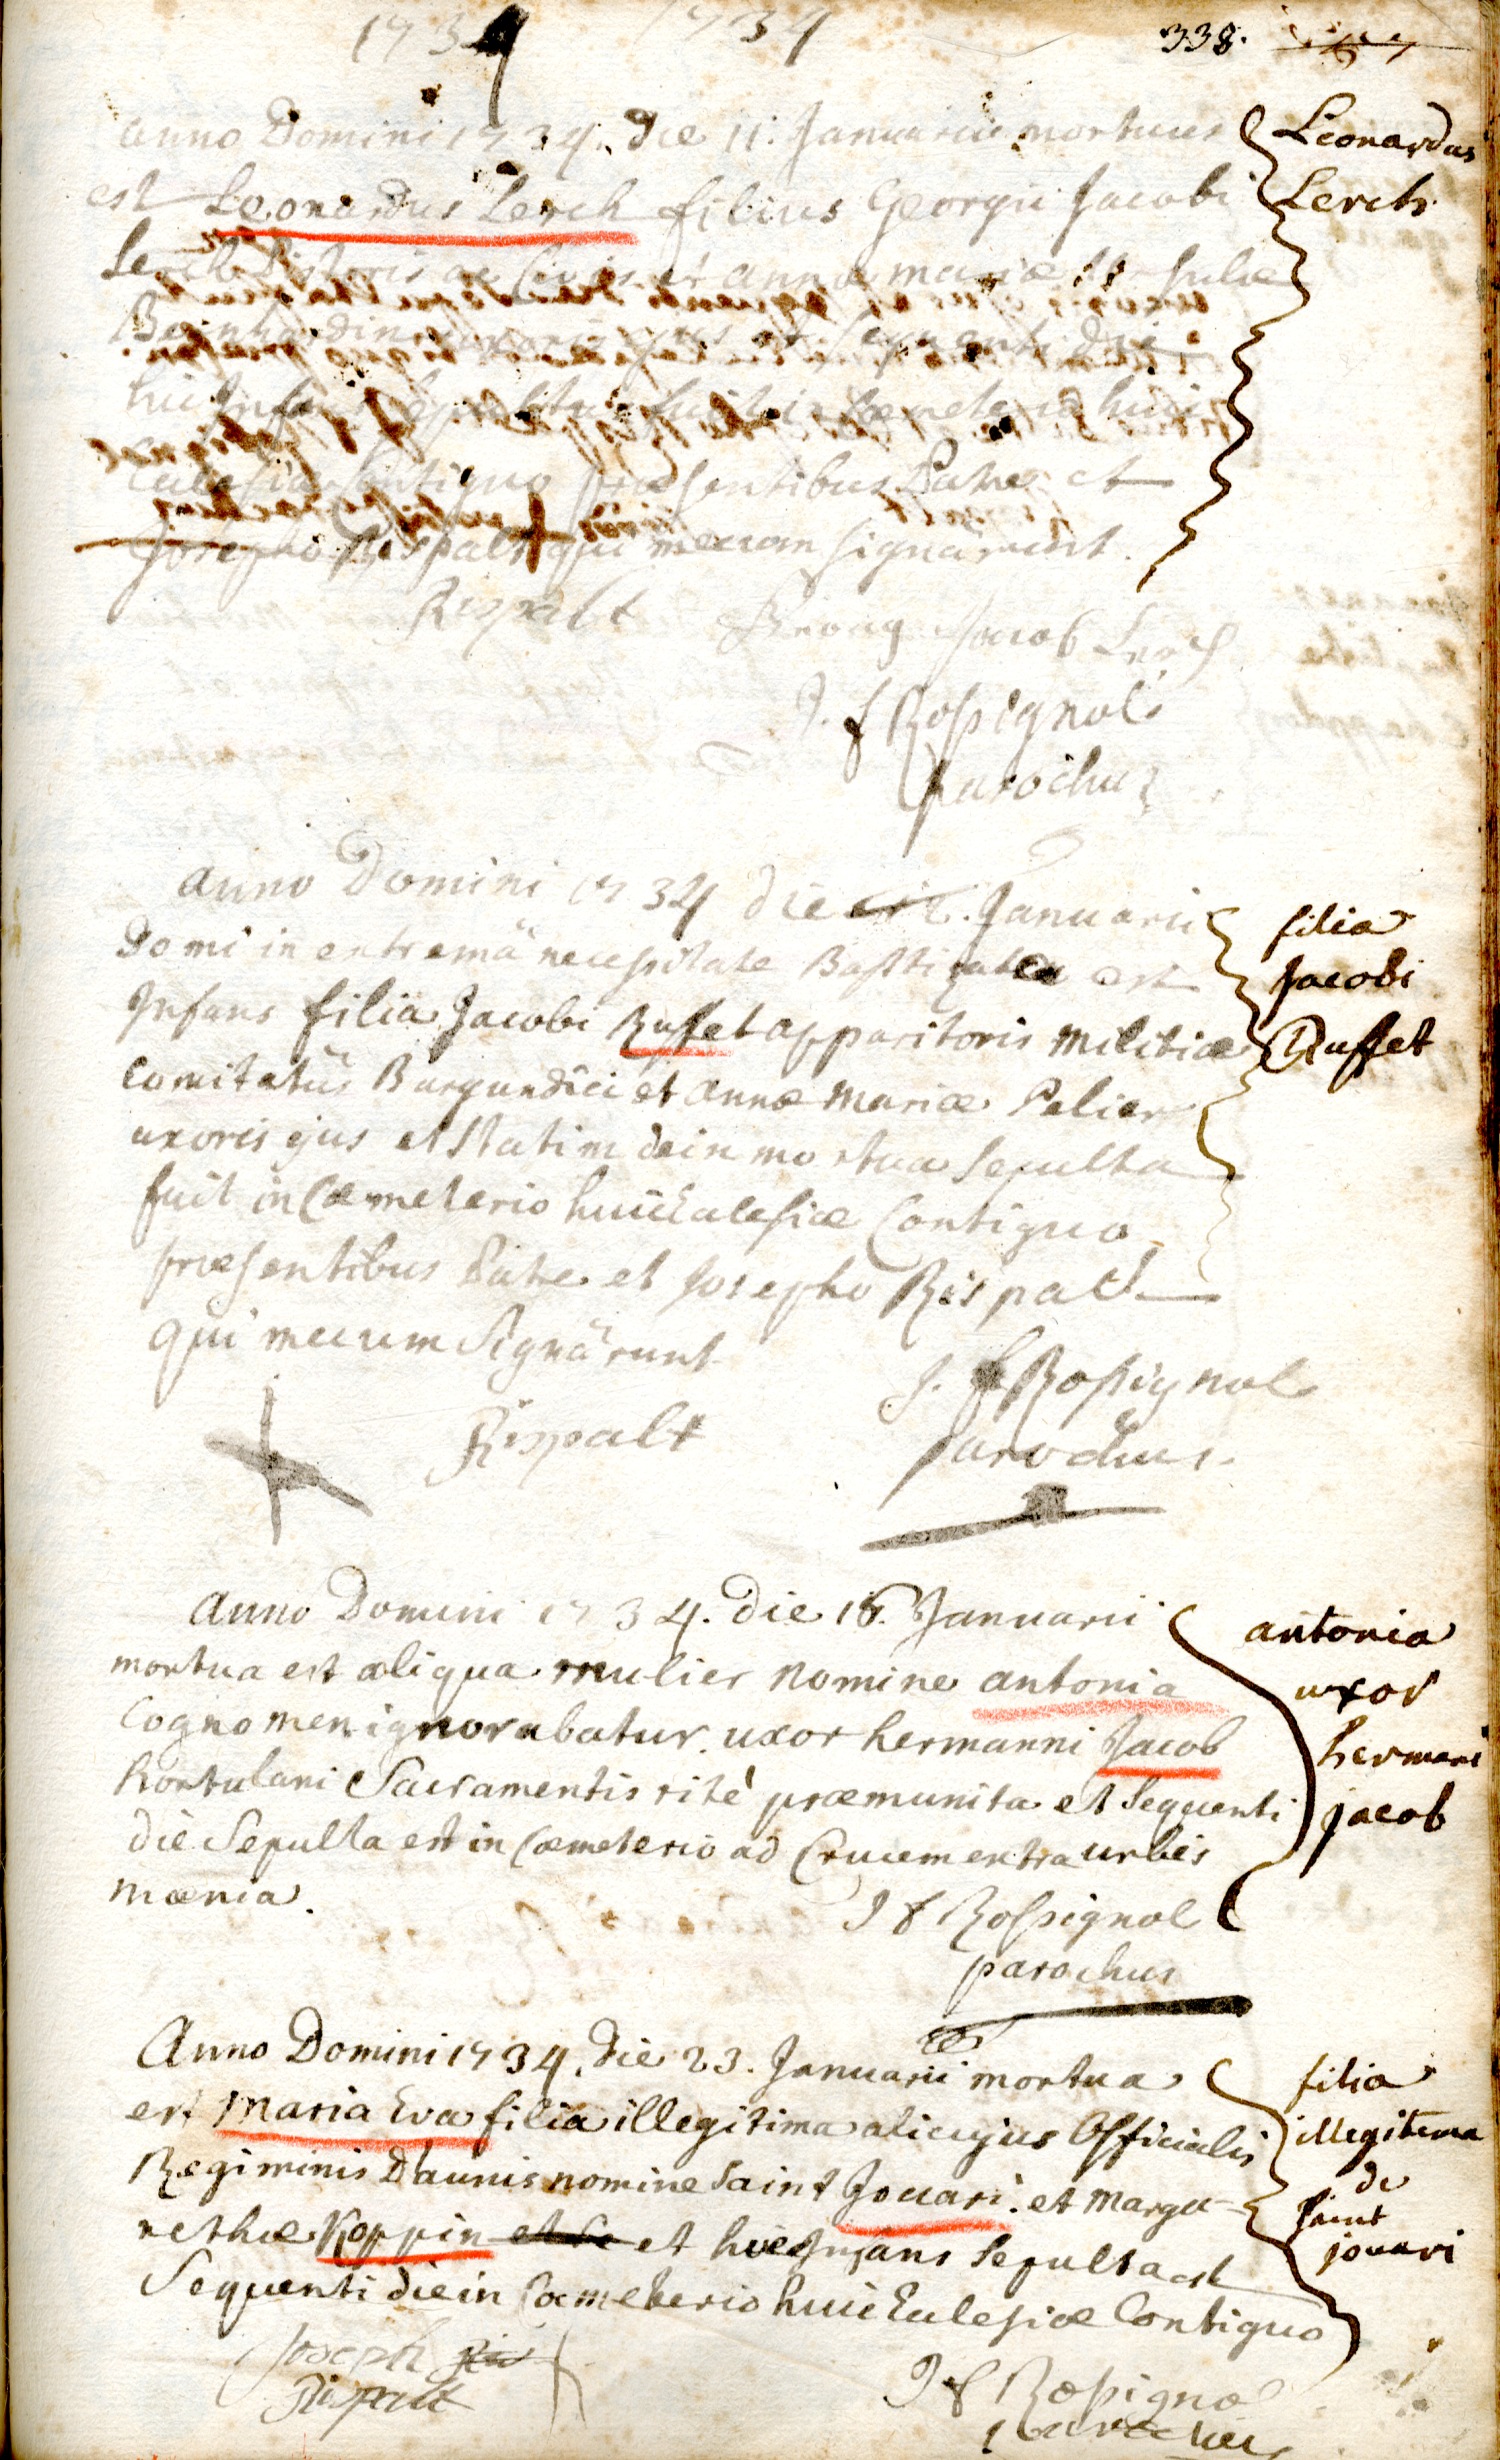 1734 1734 338.
Anno Domini 1734. die 11. Januarii mortuus
est Leonardus Lerch filius Georgii Jacobi
Lerch Pistoris ac Civis et annæ mariæ
uxoris ejus et sequenti die
hic Infans sepultus fuit in Cœmeterio huic
Ecclesiæ Contiguo præsentibus Patre et
Josepho Rispalt qui mecum signârunt.
Leonardus
Lerch
Rispalt Georg Jacob Lerch
J. f Rossignol
parochus
Anno Domini 1734 die Januarii
Domi in extremâ necessitate Baptizata est
Infans filia Jacobi Ruffet apparitoris militiæ
Comitatûs Burgundici et annæ mariæ Pelier
uxoris ejus et statim dein mortua Sepulta
fuit in Cœmeterio huic Ecclesiæ Contiguo
præsentibus Patre et Josepho Rispalt
qui mecum Signârunt
filia
Jacobi
Ruffet
Rispalt
J. f Rossignol
parochus.
Anno Domini 1734. die 16. Januarii
mortua est aliqua mulier nomine antonia
Cognomen ignorabatur. uxor hermanni Jacob
hortulani Sacramentis ritè præmunita et Sequenti
die Sepulta est in Cœmeterio ad Crucem extra urbis
mœnia.
antonia
uxor
hermani
jacob
J f Rossignol
parochus
Anno Domini 1734. die 23. Januarii mortua
est Maria Eva filia illegitima alicujus Officialis
Regiminis Daunis nomine Saint Jouari. et Marga-
rethæ Koppin et Se et hæc Infans Sepulta est
Sequenti die in Cœmeterio huic Ecclesiæ Contiguo
filia
illegitima
de
Saint
jouari
Joseph Ris
Rispalt
J f Rossignol
parochus